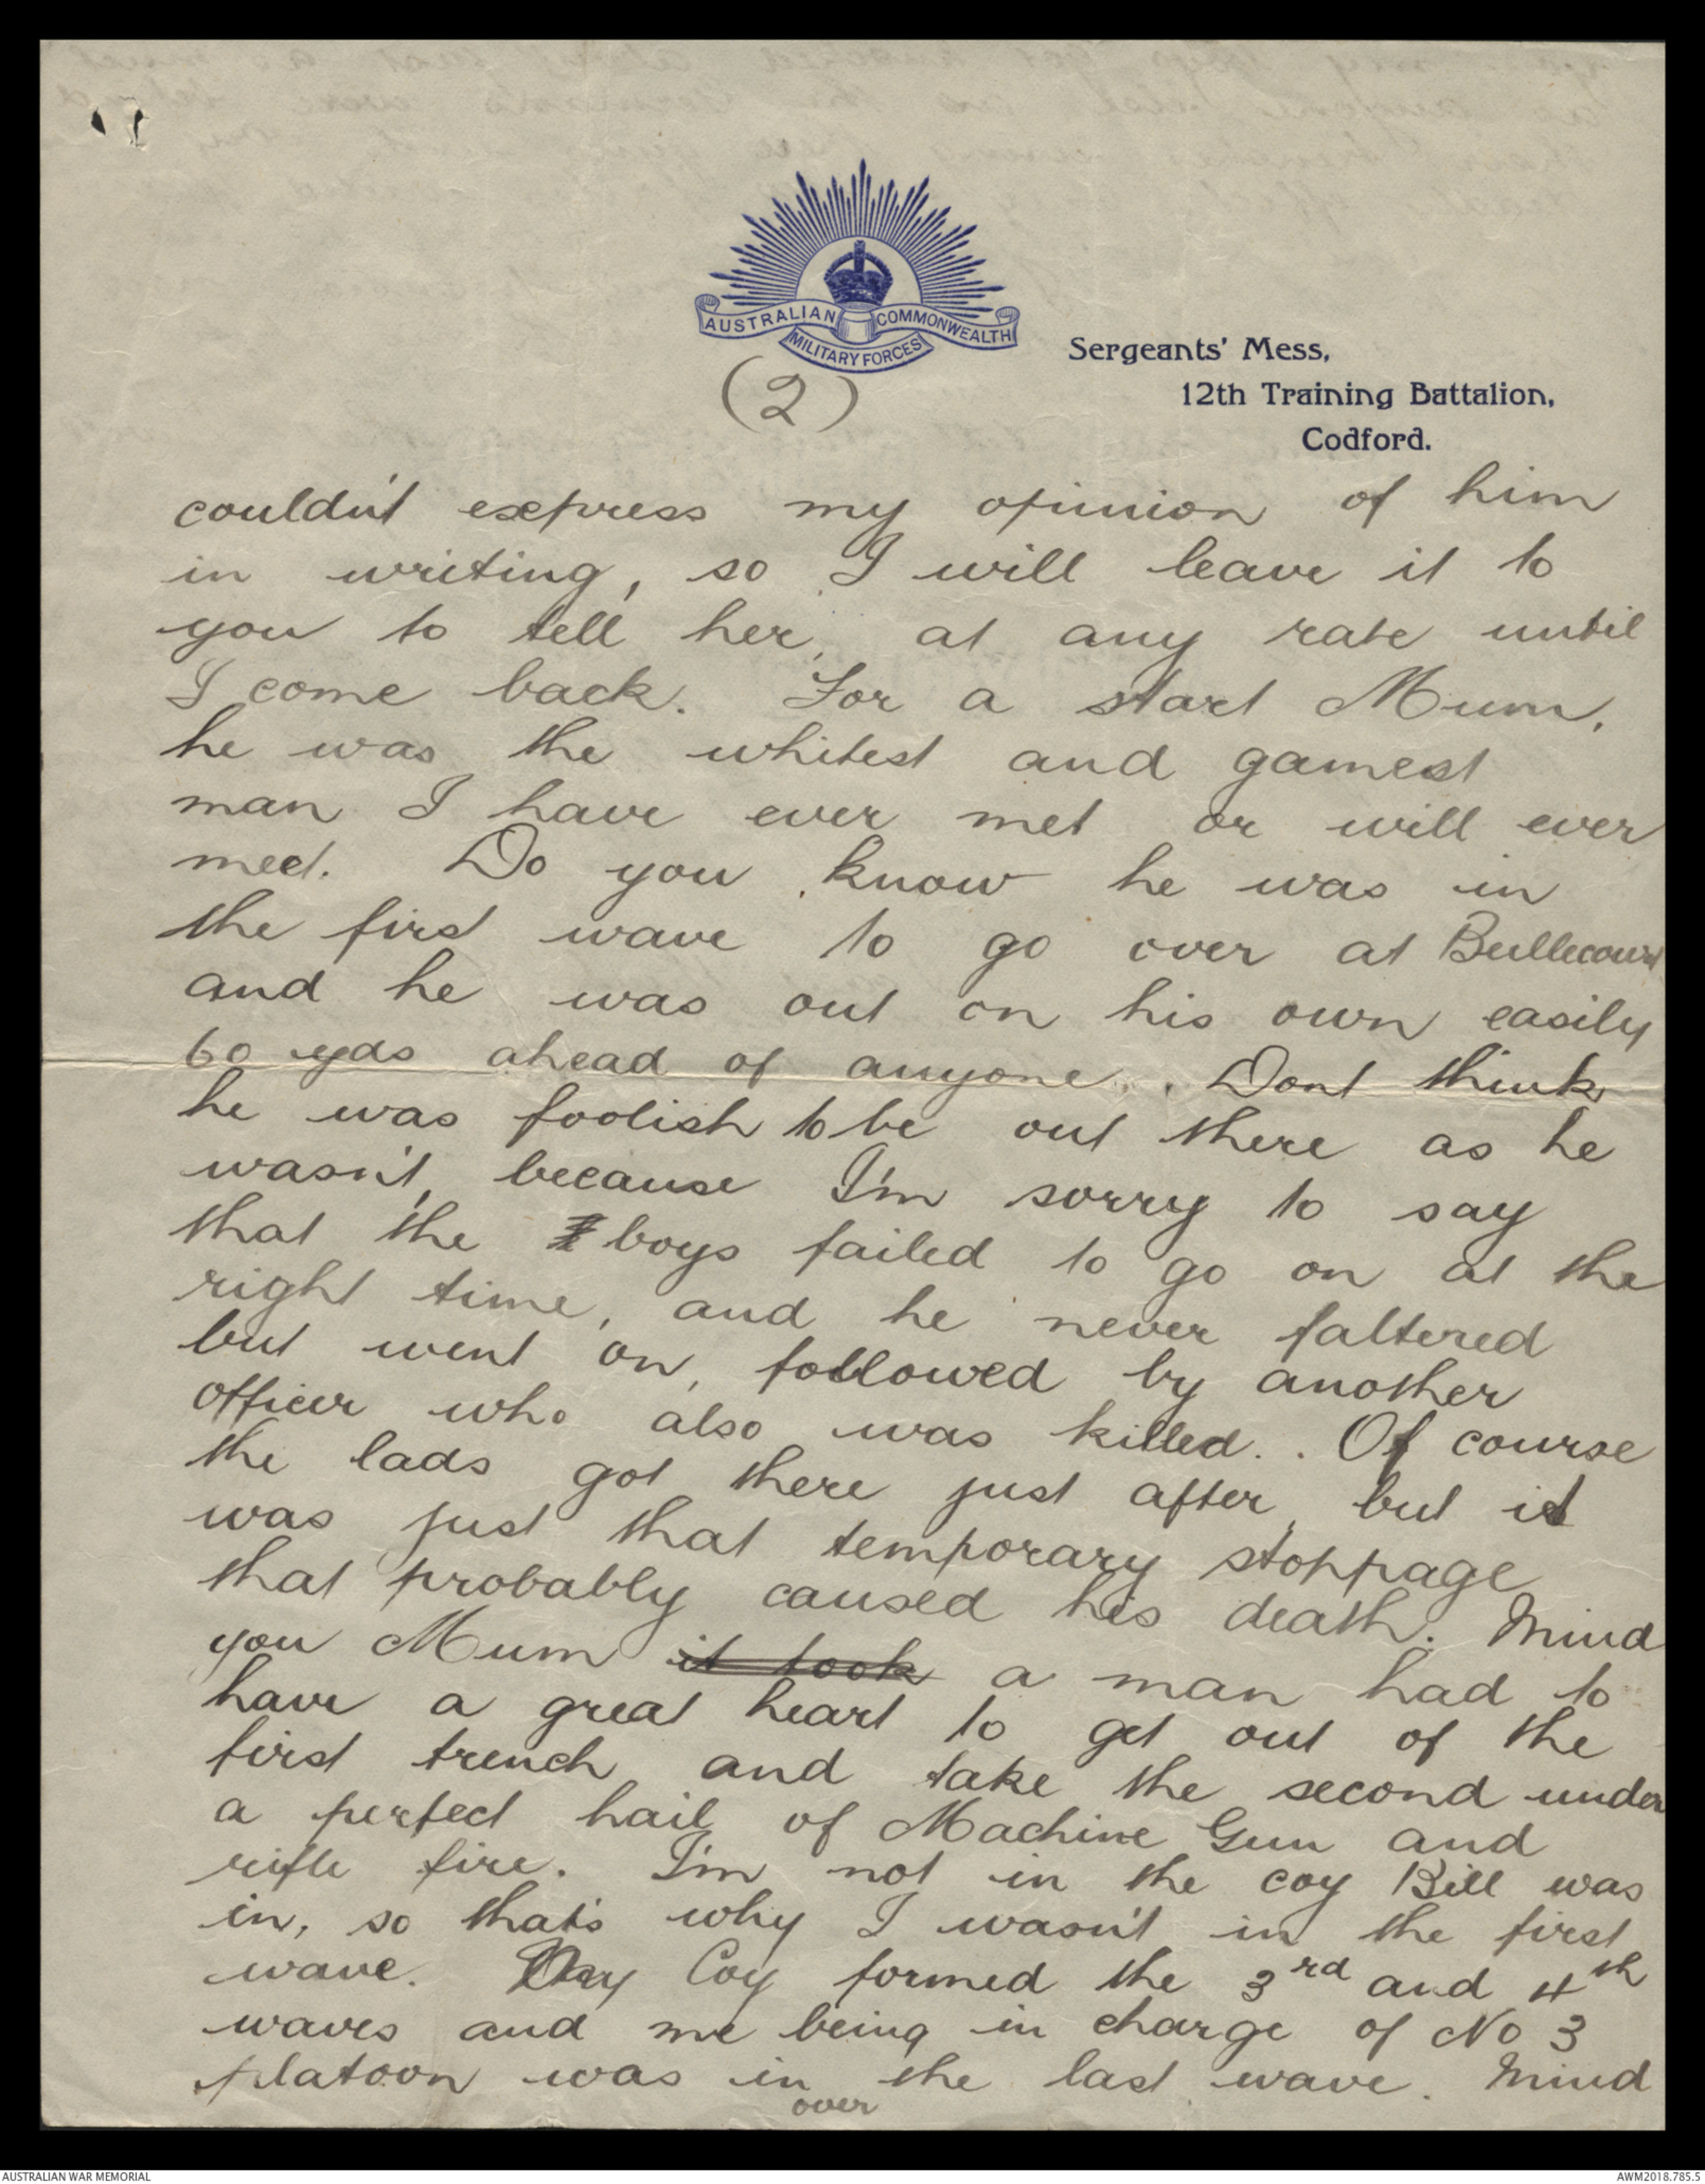 AUSTRALIAN COMMONWEALTH
MILITARY FORCES
(2)
Sergeants' Mess,
12th Training Battalion,
Codford.
couldn't express my opinion of him
in writing, so I will leave it to
you to tell her, at any rate until
I come back. For a start Mum,
he was the whitest and gamest
man I have ever met or will ever
meet. Do you know he was in
the first wave to go over at Bullecourt
and he was out on his own easily
60 yds ahead of anyone. Dont think
he was foolish to be out there as he
wasn't, because I'm sorry to say
that the boys failed to go on at the
right time, and he never faltered
but went on, followed by another
officer who also was killed. Of course
the lads got there just after, but it
was just that temporary stoppage
that probably caused his death. Mind
you Mum it took a man had to
have a great heart to get out of the
first trench and take the second under
a perfect hail of Machine Gun and
rifle fire. I'm not in the coy Bill was
in, so that's why I wasn't in the first
wave. My Coy formed the 3rd and 4th
waves and me being in charge of No 3
platoon was in the last wave. Mind
over
AUSTRALIAN WAR MEMORIAL
AWM2018.785.5